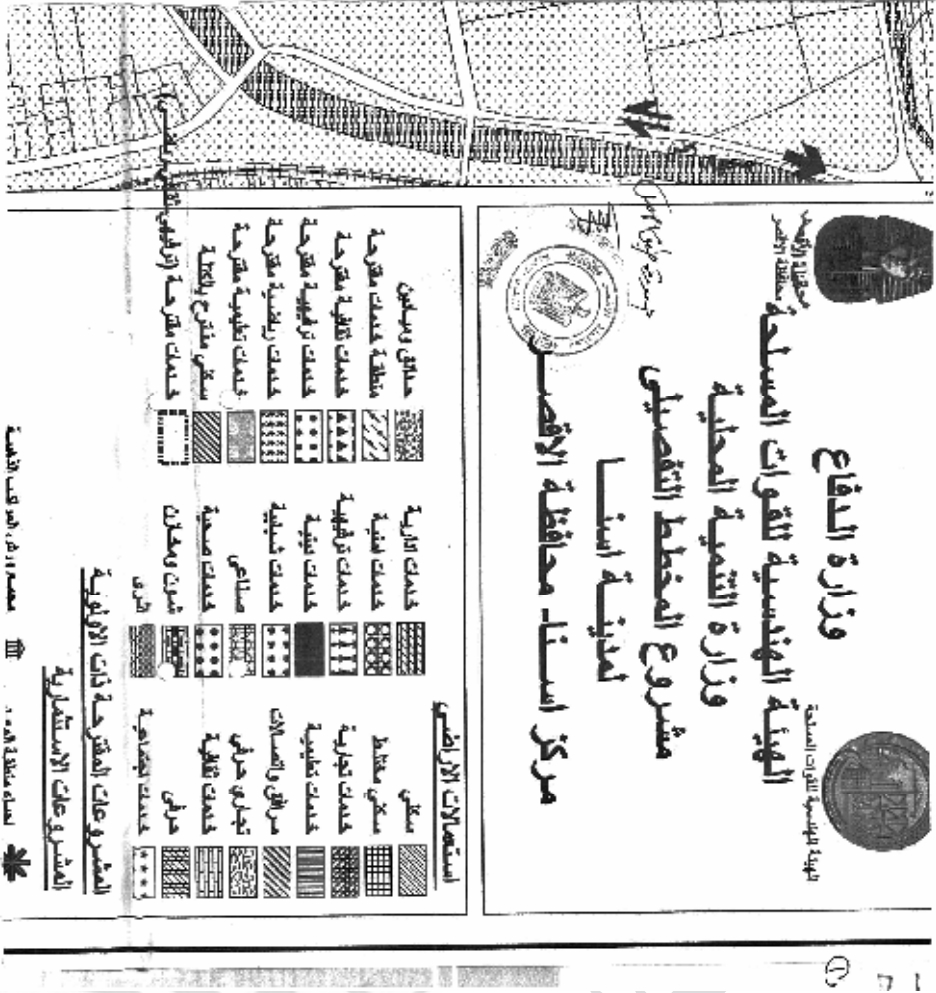 وزارة الدفاع
الهيئة الهندسية للقوات المسلحة
وزارة التنمية المحلية
مشروع المخطط التفصيلى
لمدينة اسنا
مركز اسنا - محافظة الاقصر
محافظة الاقصر
الهيئة الهندسية للقوات المسلحة
استعمالات الاراضى
سكنى
سكنى مختلط
خدمات تجارية
خدمات تعليمية
مرافق واتصالات
تجارى حرفى
خدمات ثقافية
حرفى
خدمات اجتماعية
خدمات ادارية
خدمات امنية
خدمات ترفيهية
خدمات دينية
خدمات شبابية
صناعى
خدمات صحية
شون ومخازن
اثرى
حدائق وبساتين
منطقة خدمات مقترحة
خدمات ثقافية مقترحة
خدمات ترفيهية مقترحة
خدمات رياضية مقترحة
خدمات تعليمية مقترحة
سكنى مقترح
خدمات مقترحة
المشروعات المقترحة ذات الاولوية
المشروعات الاستثمارية